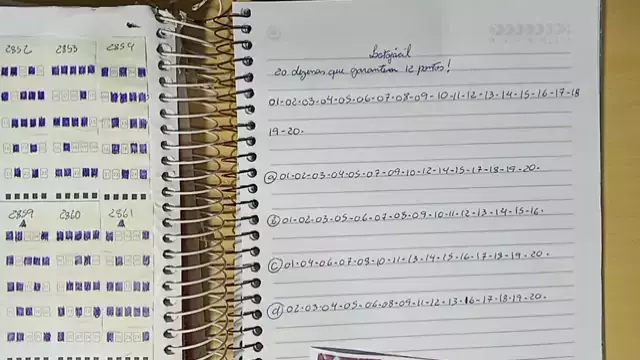 2852 2853 2854
2859 2860 2861
Lotofácil
20 dezenas que garantem 12 pontos!
01-02-03-04-05-06-07-08-09-10-11-12-13-14-15-16-17-18
19-20.
a) 01-02-03-04-05-07-09-10-12-14-15-17-18-19-20.
b) 01-02-03-05-06-07-08-09-10-11-12-13-14-15-16.
c) 01-04-06-07-08-10-11-13-14-15-16-17-18-19-20.
d) 02-03-04-05-06-08-09-11-12-13-16-17-18-19-20.